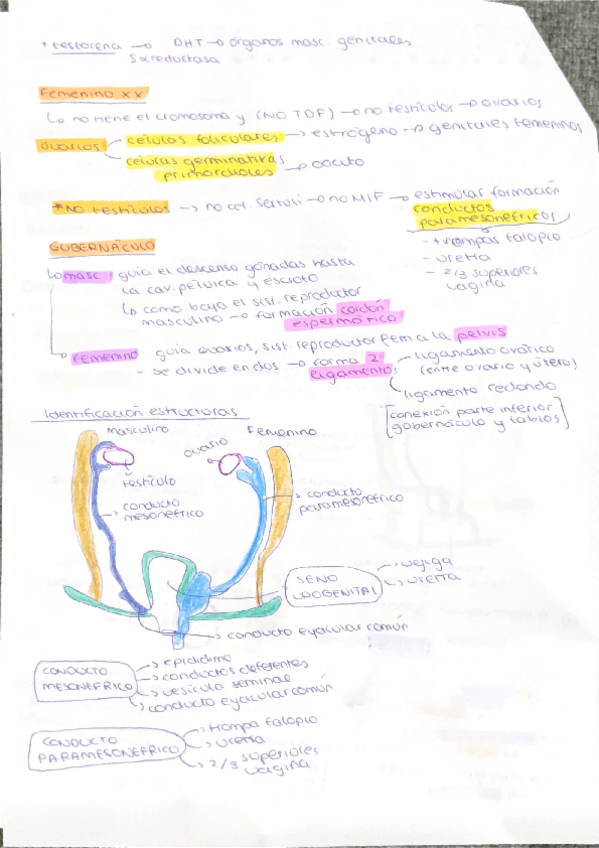 * testorena → DHT → órganos masc. genitales
5αreductasa
Femenino XX
↳ no tiene el cromosoma y (NO TDF) → no testículos → ovarios
ovarios
células foliculares → estrógeno → genitales femeninos
células germinativas primordiales → oocito
*NO testículos → no cel. Sertoli → no MIF → estimular formación
conductos
paramesonéfricos
- trompas falopio
- uretra
- 2/3 superiores
vagina
GOBERNÁCULO
↳ masc: guía el descenso gónadas hasta
la cav. pélvica y escroto
↳ como bajo el sist. reproductor
masculino → formación cordón
espermático
↳ femenino: guía ovarios, sist. reproductor fem a la pelvis
- se divide en dos → forma 2
ligamento
ligamento ovático
(entre ovario y útero)
ligamento redondo
[conexión parte inferior
gobernáculo y labios]
Identificación estructuras
masculino
ovario
Femenino
testículo
conducto
mesonéfrico
conducto
paramesonéfrico
SENO
UROGENITAL
→ vejiga
→ uretra
→ conducto eyacular común
CONDUCTO
MESONEFRICO
→ epidídimo
→ conductos deferentes
→ vesícula seminal
→ conducto eyacular común
CONDUCTO
PARAMESONEFRICO
→ trompa falopio
→ uretra
→ 2/3 superiores
vagina